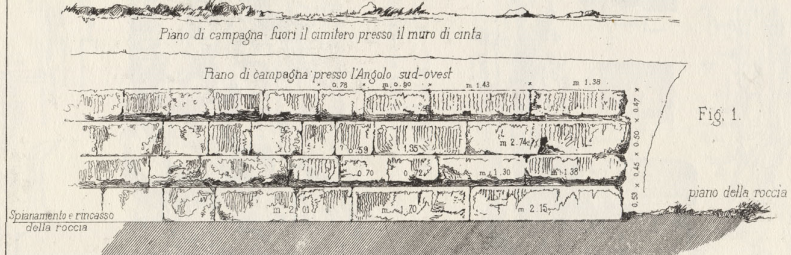 Piano di campagna fuori il cimitero presso il muro di cinta
Piano di campagna presso l'Angolo sud-ovest
0.78 m. 0.90 m 1.43 m 1.38
Fig. 1.
m 2.74
0.59
0.70 m 1.30 m 1.38
m 1.70 m 2.15
0.53 × 0.45 × 0.50 × 0.47 ×
piano della roccia
Spianamento e rincasso
della roccia